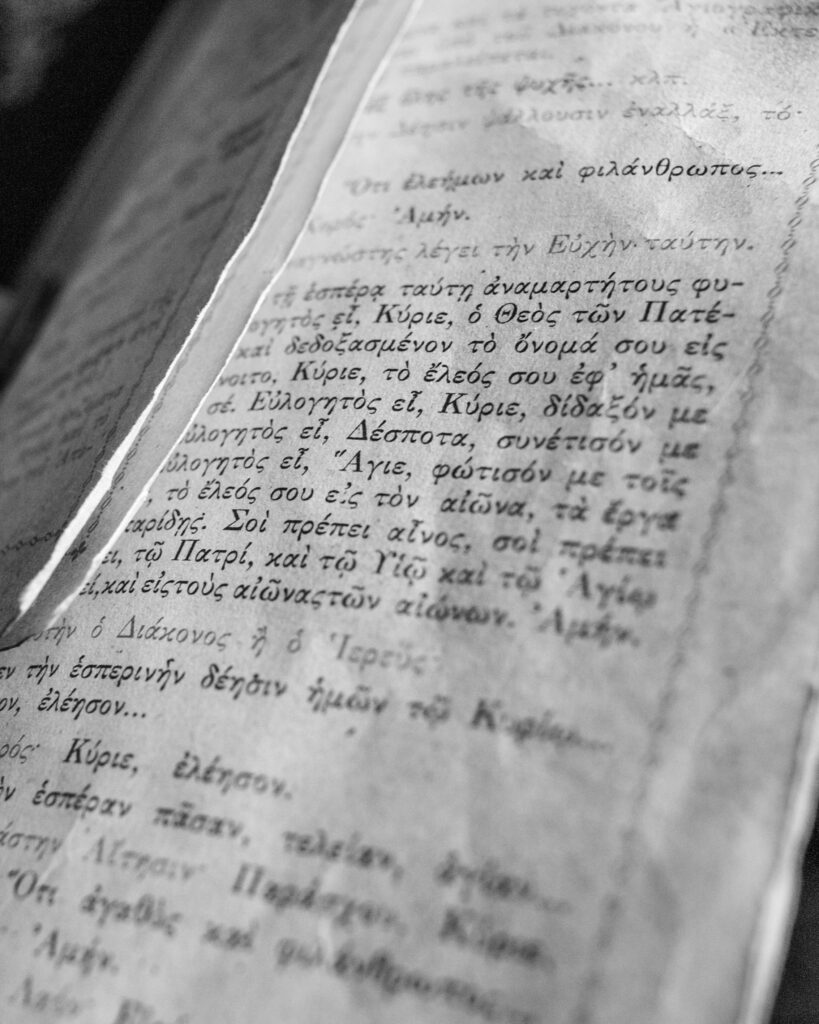 καὶ τὰ
Διακόνου ἢ
ὅλης τῆς ψυχῆς... κλπ.
ψάλλουσιν ἐναλλάξ, τό·
Ὅτι ἐλεήμων καὶ φιλάνθρωπος...
Χορός· Ἀμήν.
λέγει τὴν Εὐχὴν ταύτην.
τῇ ἑσπέρᾳ ταύτῃ ἀναμαρτήτους φυ-
ογητὸς εἶ, Κύριε, ὁ Θεὸς τῶν Πατέ-
καὶ δεδοξασμένον τὸ ὄνομά σου εἰς
νοιτο, Κύριε, τὸ ἔλεός σου ἐφ' ἡμᾶς,
σέ. Εὐλογητὸς εἶ, Κύριε, δίδαξόν με
ὐλογητὸς εἶ, Δέσποτα, συνέτισόν με
ὐλογητὸς εἶ, Ἅγιε, φώτισόν με τοῖς
, τὸ ἔλεός σου εἰς τὸν αἰῶνα, τὰ ἔργα
αρίδῃς. Σοὶ πρέπει αἶνος, σοὶ πρέπει
ει, τῷ Πατρί, καὶ τῷ Υἱῷ καὶ τῷ Ἁγίῳ
εί, καὶ εἰς τοὺς αἰῶνας τῶν αἰώνων. Ἀμήν.
ὁ Διάκονος ἢ ὁ Ἱερεύς·
εν τὴν ἑσπερινὴν δέησιν ἡμῶν τῷ Κυρίῳ...
ον, ἐλέησον...
ρός· Κύριε, ἐλέησον.
ὴν ἑσπέραν πᾶσαν, τελείαν, ἁγίαν...
άστην Αἴτησιν· Παράσχου, Κύριε.
Ὅτι ἀγαθὸς καὶ φιλάνθρωπος
Ἀμήν.